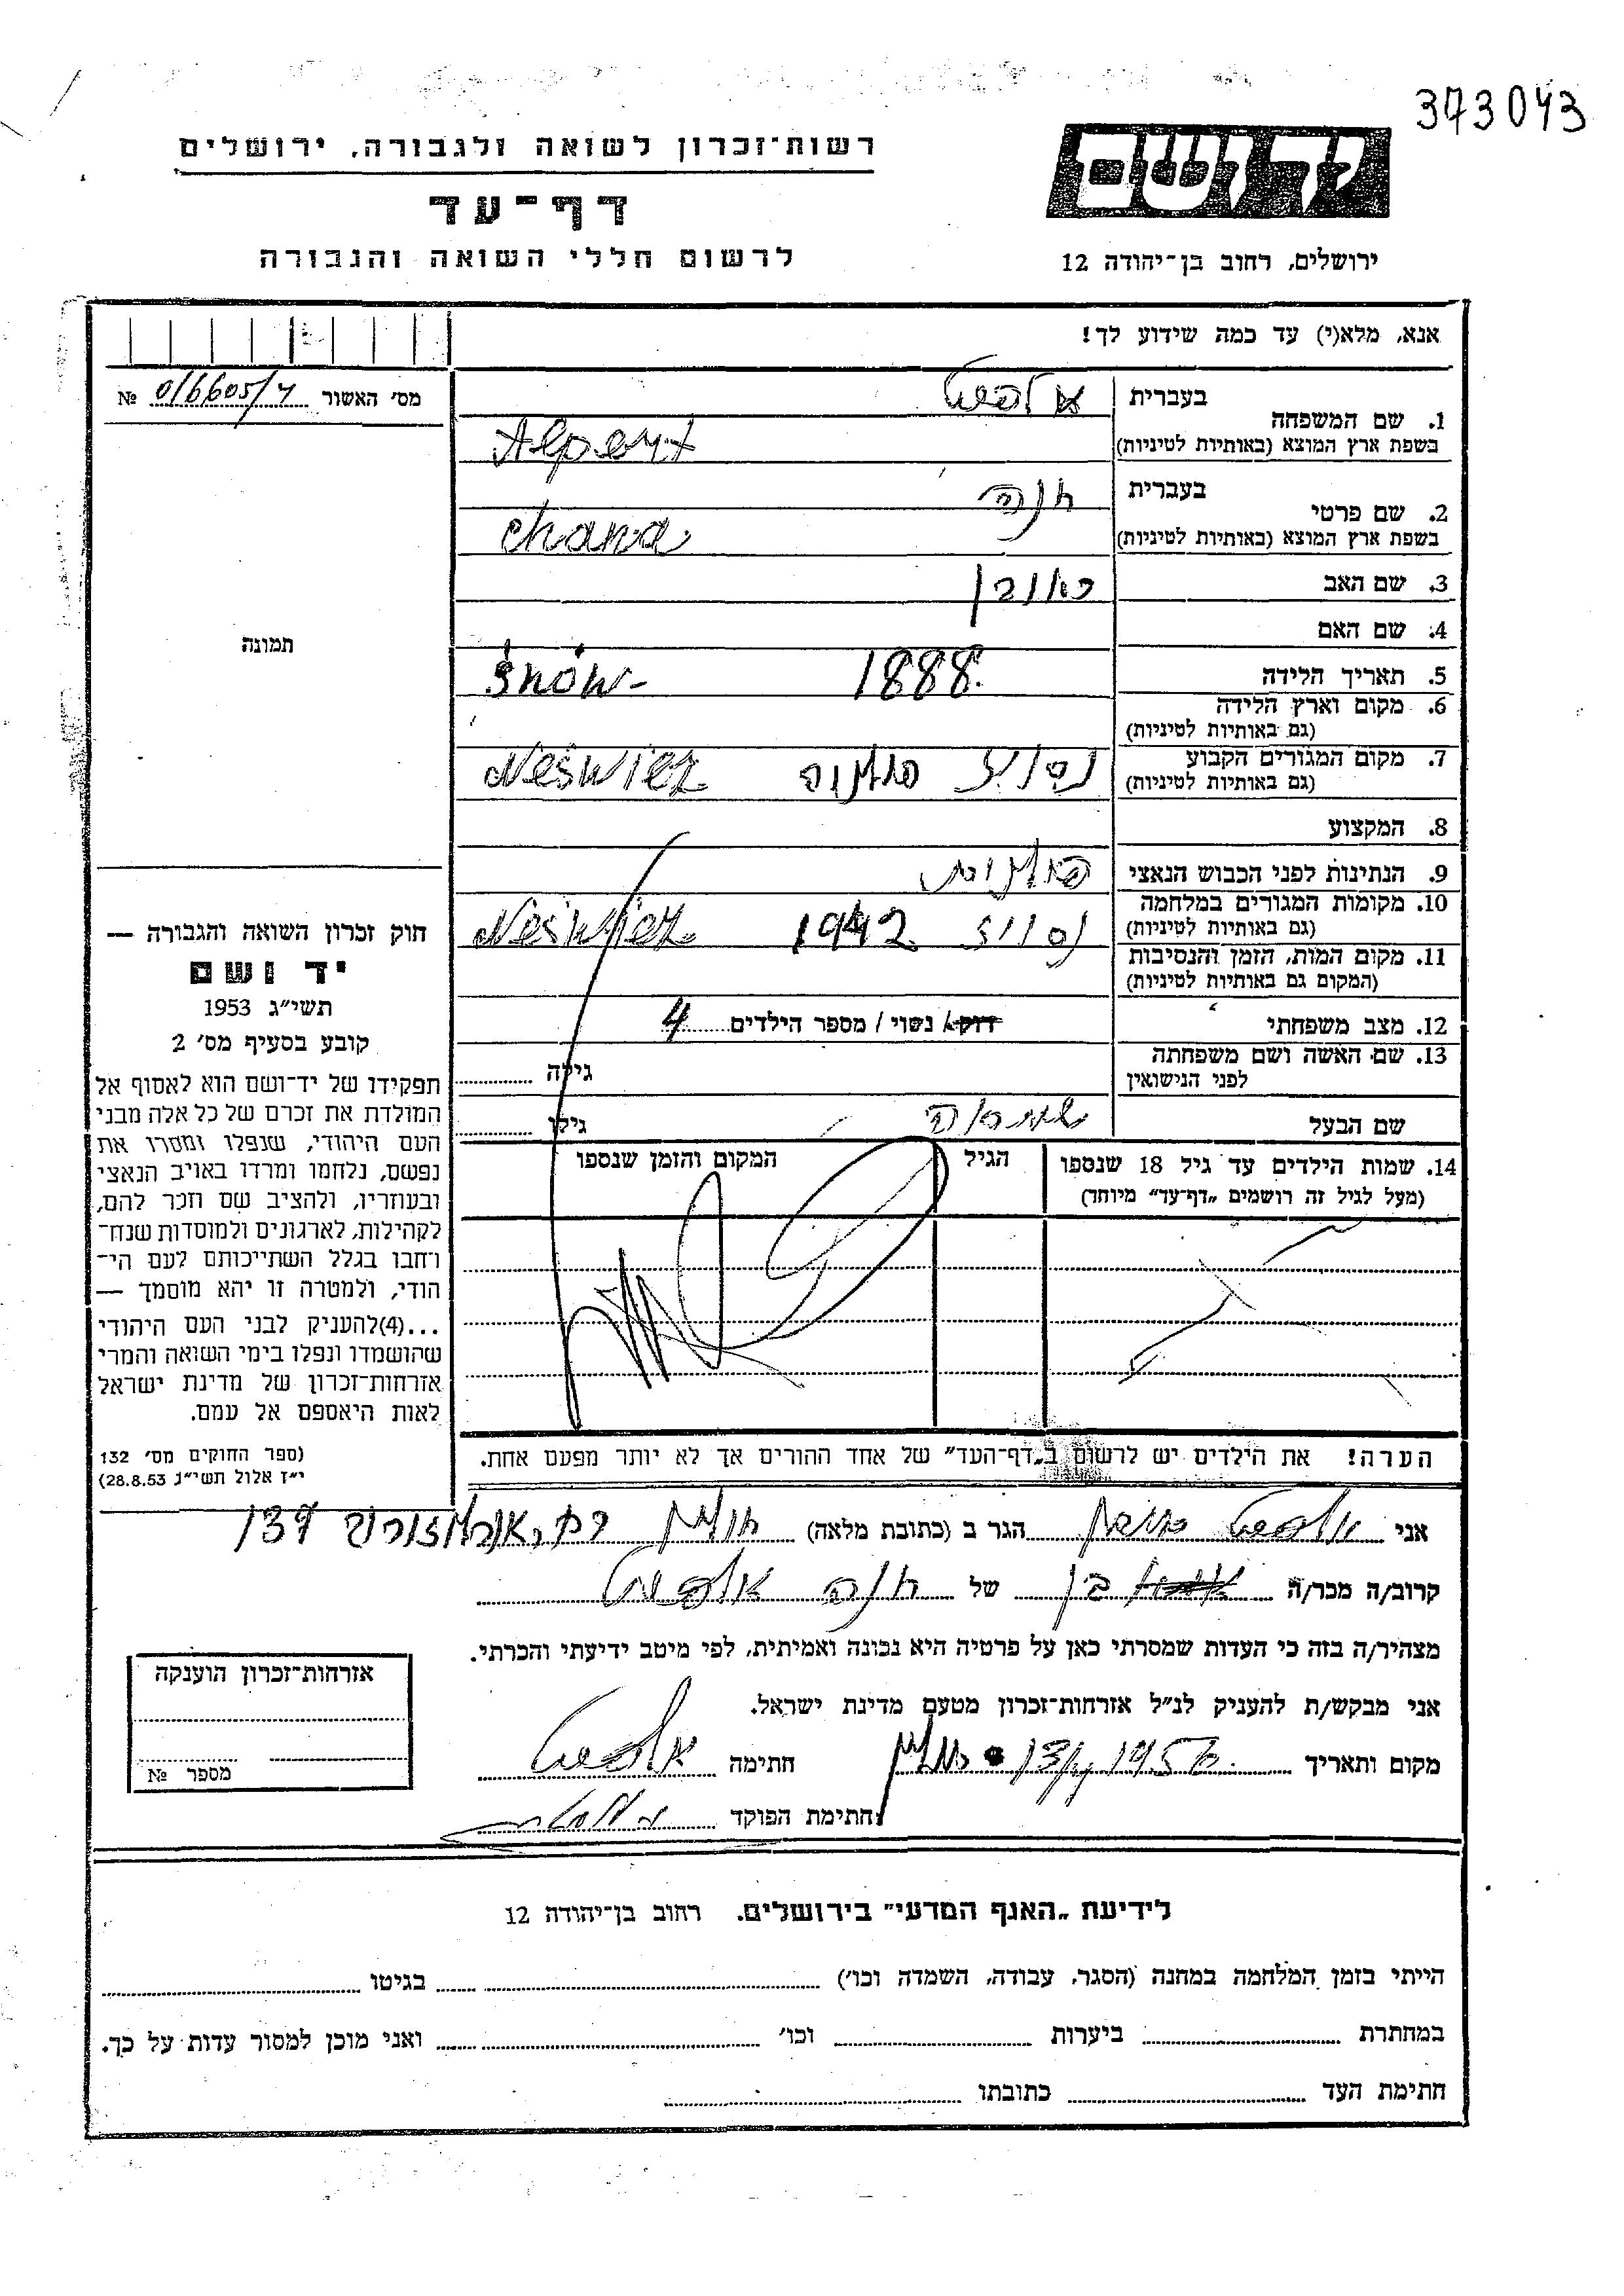 373043
רשות־זכרון לשואה ולגבורה, ירושלים
דף־עד
לרשום חללי השואה והגבורה
יד ושם
ירושלים, רחוב בן־יהודה 12
אנא, מלא(י) עד כמה שידוע לך!
מס׳ האשור 016605/4 №
תמונה
1. שם המשפחה בעברית אלפרט
בשפת ארץ המוצא (באותיות לטיניות) Alpert
2. שם פרטי בעברית חנה
בשפת ארץ המוצא (באותיות לטיניות) Chana
3. שם האב ראובן
4. שם האם
5. תאריך הלידה 1888
6. מקום וארץ הלידה
(גם באותיות לטיניות)
7. מקום המגורים הקבוע
(גם באותיות לטיניות) Neświez
8. המקצוע
9. הנתינות לפני הכבוש הנאצי
10. מקומות המגורים במלחמה
(גם באותיות לטיניות) 1942 Neświez
11. מקום המות, הזמן והנסיבות
(המקום גם באותיות לטיניות)
12. מצב משפחתי רוק/ נשוי / מספר הילדים 4
13. שם האשה ושם משפחתה גילה
לפני הנישואין
שם הבעל גילו
14. שמות הילדים עד גיל 18 שנספו הגיל המקום והזמן שנספו
(מעל לגיל זה רושמים „דף־עד״ מיוחד)
הערה! את הילדים יש לרשום ב„דף־העד״ של אחד ההורים אך לא יותר מפעם אחת.
חוק זכרון השואה והגבורה —
יד ושם
תשי״ג 1953
קובע בסעיף מס׳ 2
תפקידו של יד־ושם הוא לאסוף אל
המולדת את זכרם של כל אלה מבני
העם היהודי, שנפלו ומסרו את
נפשם, נלחמו ומרדו באויב הנאצי
ובעוזריו, ולהציב שם וזכר להם,
לקהילות, לארגונים ולמוסדות שנח־
רחבו בגלל השתייכותם לעם הי־
הודי, ולמטרה זו יהא מוסמך —
...(4)להעניק לבני העם היהודי
שהושמדו ונפלו בימי השואה והמרי
אזרחות־זכרון של מדינת ישראל
לאות היאספם אל עמם.
(ספר החוקים מס׳ 132
י״ז אלול תשי״ג 28.8.53)
אני אלפרט הגר ב (כתובת מלאה) חולון 137
קרוב/ה מכר/ה בן של חנה אלפרט
מצהיר/ה בזה כי העדות שמסרתי כאן על פרטיה היא נכונה ואמיתית, לפי מיטב ידיעתי והכרתי.
אני מבקש/ת להעניק לנ״ל אזרחות־זכרון מטעם מדינת ישראל.
מקום ותאריך חולון 1956 חתימה אלפרט
חתימת הפוקד
אזרחות־זכרון הוענקה
מספר №
לידיעת „האגף המדעי״ בירושלים. רחוב בן־יהודה 12
הייתי בזמן המלחמה במחנה (הסגר, עבודה, השמדה וכו׳) בגיטו
במחתרת ביערות וכו׳ ואני מוכן למסור עדות על כך.
חתימת העד כתובתו